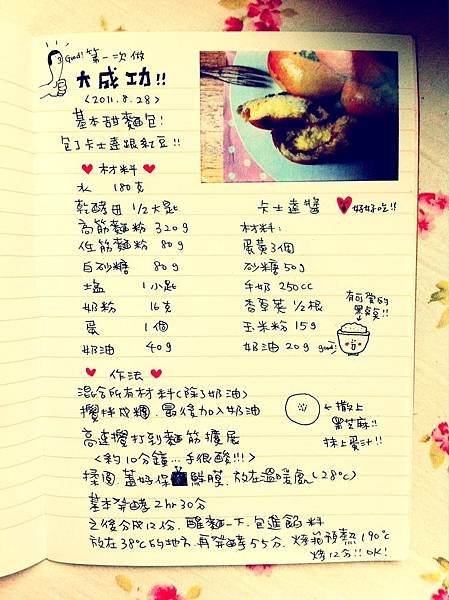 Good! 第一次做
大成功!!
<2011.8.28>
基本甜麵包!
包了卡士達跟紅豆!!
材料
水 180克
乾酵母 1/2大匙
高筋麵粉 320g
低筋麵粉 80g
白砂糖 80g
塩 1小匙
奶粉 16克
蛋 1個
奶油 40g
卡士達醬 好好吃!!
材料:
蛋黃3個
砂糖50g
牛奶 250cc
香草莢 1/2根
玉米粉 15g
奶油 20g good!
有可愛的
黑點!!
作法
混合所有材料(除了奶油)
攪拌成糰.最後加入奶油
高速攪打到麵筋擴展
<約10分鐘...手很酸!!!>
揉圓.蓋好保鮮膜.放在溫暖處(28°C)
基本發酵2hr30分
之後分成12份.醒麵一下.包進餡料
放在38°C的地方.再發酵55分.烤箱預熱190°C
烤12分!! OK!
←撒上
黑芝麻!!
抹上蛋汁!!